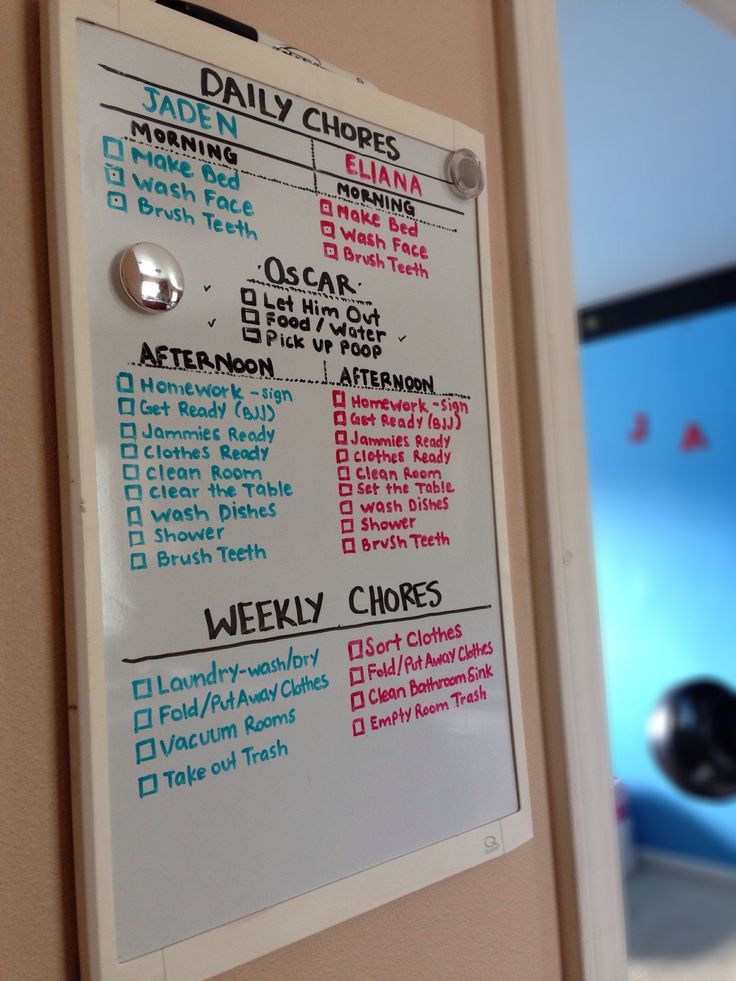 DAILY CHORES
JADEN
MORNING
Make Bed
Wash Face
Brush Teeth
ELIANA
MORNING
Make Bed
Wash Face
Brush Teeth
OSCAR
Let Him Out
Food / Water
Pick UP POOP
AFTERNOON
Homework -sign
Get Ready (BJJ)
Jammies Ready
Clothes Ready
Clean Room
Clear the Table
Wash Dishes
Shower
Brush Teeth
AFTERNOON
Homework -sign
Get Ready (BJJ)
Jammies Ready
Clothes Ready
Clean Room
Set the Table
Wash Dishes
Shower
Brush Teeth
WEEKLY CHORES
Laundry-wash/Dry
Fold/Put Away Clothes
Vacuum Rooms
Take out Trash
Sort Clothes
Fold/Put Away Clothes
Clean Bathroom Sink
Empty Room Trash
J A